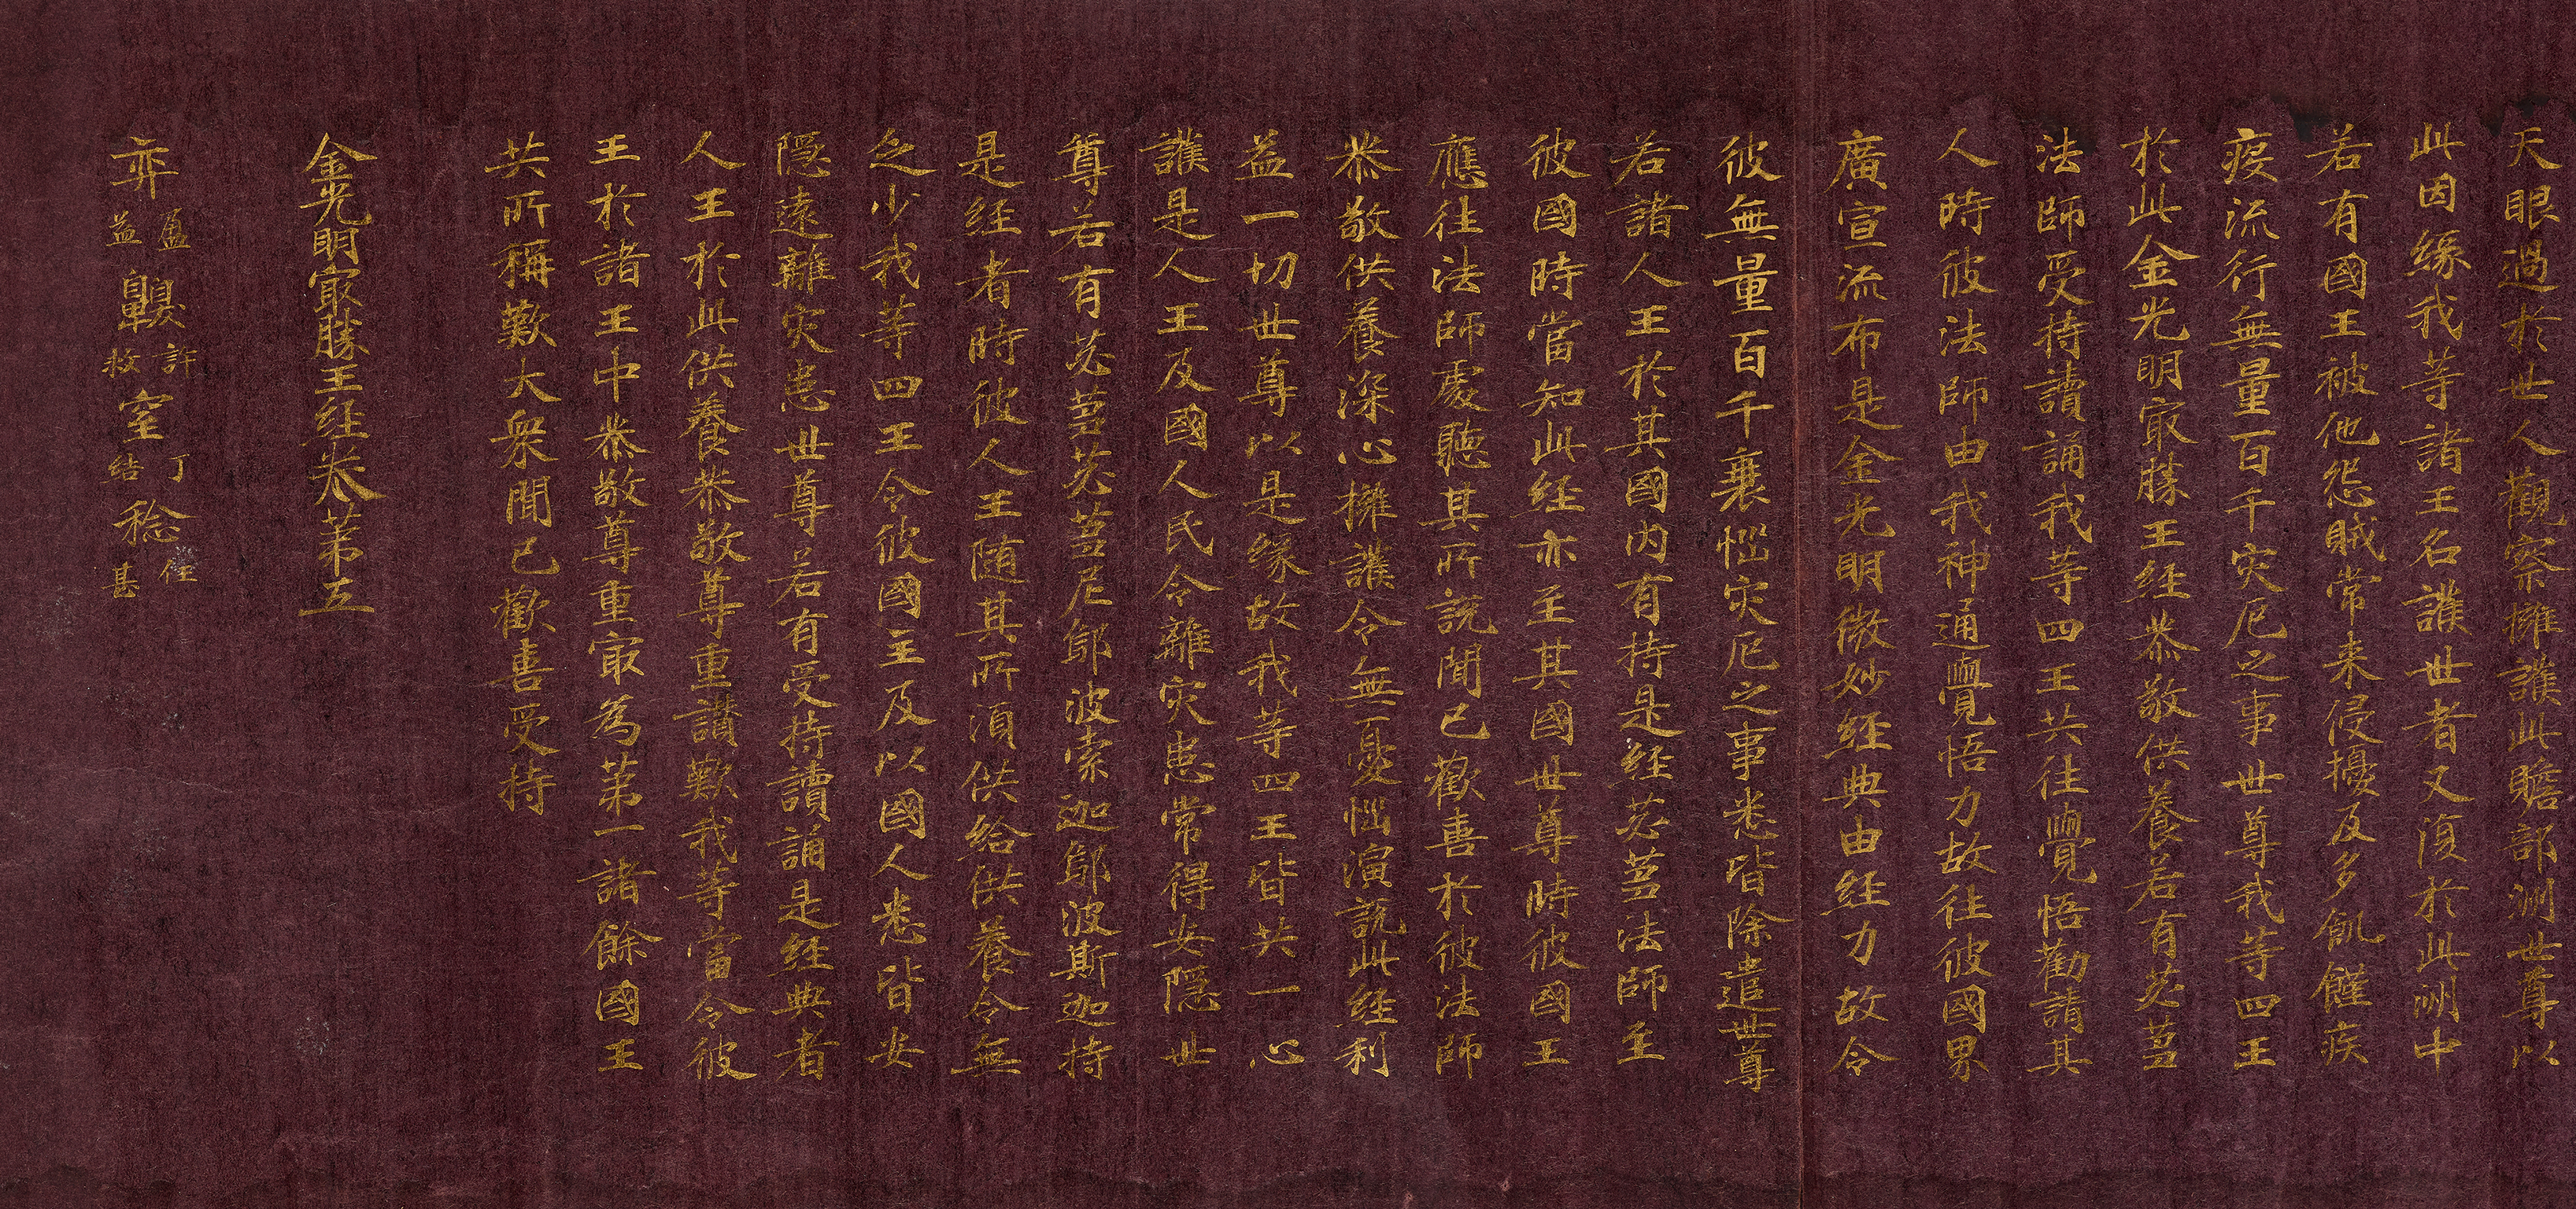 天眼過於世人觀察擁護此贍部洲世尊以
此因緣我等諸王名護世者又復於此洲中
若有國王被他怨賊常来侵擾及多飢饉疾
疫流行無量百千灾厄之事世尊我等四王
於此金光明㝡勝王経恭敬供養若有苾蒭
法師受持讀誦我等四王共往覺悟勸請其
人時彼法師由我神通覺悟力故往彼國界
廣宣流布是金光明微妙経典由経力故令
彼無量百千衰惱灾厄之事悉皆除遣世尊
若諸人王於其國内有持是経苾蒭法師至
彼國時當知此経亦至其國世尊時彼國王
應往法師處聽其所説聞已歡喜於彼法師
恭敬供養深心擁護令無憂惱演説此経利
益一切世尊以是緣故我等四王皆共一心
護是人王及國人民令離灾患常得安隱世
尊若有苾蒭苾蒭尼鄔波索迦鄔波斯迦持
是経者時彼人王随其所須供給供養令無
乏少我等四王令彼國主及以國人悉皆安
隱遠離灾患世尊若有受持讀誦是経典者
人王於此供養恭敬尊重讃歎我等當令彼
王於諸王中恭敬尊重㝡為苐一諸餘國王
共所稱歎大衆聞已歡喜受持
金光明㝡勝王経卷苐五
弈盈益鼻許救窒丁結稔甚